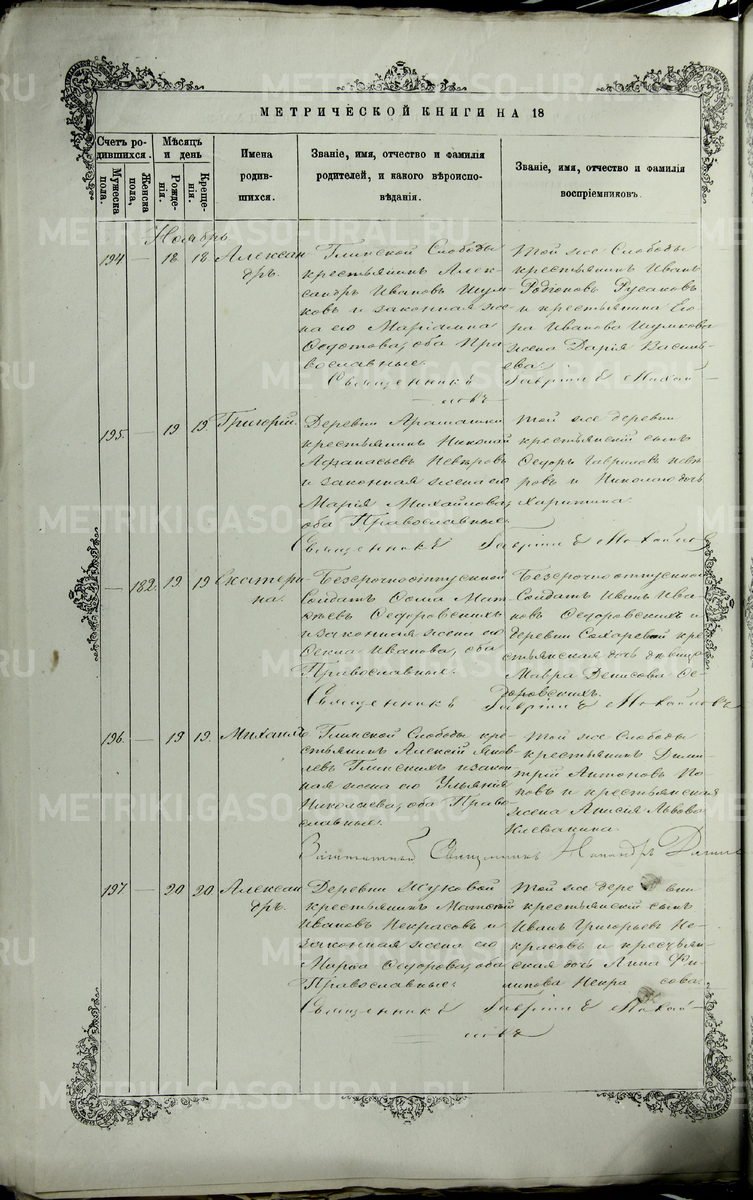 МЕТРИЧЕСКОЙ КНИГИ НА 18
Счетъ ро-
дившихся.
Мужеска
пола.
Женска
пола.
Мѣсяцъ
и день
Рожде-
нія.
Креще-
нія.
Имена
родив-
шихся.
Званіе, имя, отчество и фамилія
родителей, и какого вѣроиспо-
вѣданія.
Званіе, имя, отчество и фамилія
воспріемниковъ.
Ноябрь
194 — 18 18 Александръ.
Глинской Слободы
крестьянинъ Алек-
сандръ Ивановъ Шум-
ковъ и законная же-
на его Маріамна
Ѳедотова, оба Пра-
вославные.
Той же Слободы
крестьянинъ Иванъ
Родіоновъ Русаковъ
и крестьянина Его-
ра Иванова Шумкова
жена Дарія Василь-
ева.
Священникъ Гавріилъ Михай-
ловъ
195. — 19 19 Григорій.
Деревни
крестьянинъ Николай
Аѳанасьевъ Невѣровъ
и законная жена его
Марія Михайлова,
оба Православные.
Той же деревни
крестьянскій сынъ
Ѳедоръ Гавриловъ Невѣ-
ровъ и Николаю дочь
Харитина.
Священникъ Гавріилъ Михайловъ
— 182. 19 19 Екатери-
на.
Безсрочноотпускной
Солдатъ Ѳома Мат-
вѣевъ Ѳедоровскихъ
и законная жена его
Ѳекла Иванова, оба
Православные.
Безсрочноотпускной
Солдатъ Иванъ Ива-
новъ Ѳедоровскихъ и
деревни Сохаревой кре-
стьянская дочь дѣвица
Мавра Денисова Ѳе-
доровскихъ.
Священникъ Гавріилъ Михайловъ
196. — 19 19. Михаилъ
Глинской Слободы кре-
стьянинъ Алексій Яков-
левъ Глинскихъ и закон-
ная жена его Ульянія
Николаева, оба Право-
славные.
Той же Слободы
крестьянинъ Дими-
трій Антоновъ По-
повъ и крестьянская
жена Анисія Львова
Клевакина.
Заштатный Священникъ
197. — 20 20 Алексан-
дръ.
Деревни Жуковой
крестьянинъ Матвѣй
Ивановъ Некрасовъ и
законная жена его
Марѳа Ѳедорова, оба
Православные.
Той же деревни
крестьянскій сынъ
Иванъ Григорьевъ Не-
красовъ и крестьян-
ская дочь Анна Фи-
липова Некрасова.
Священникъ Гавріилъ Михай-
ловъ
METRIKI.GASO-URAL.RU